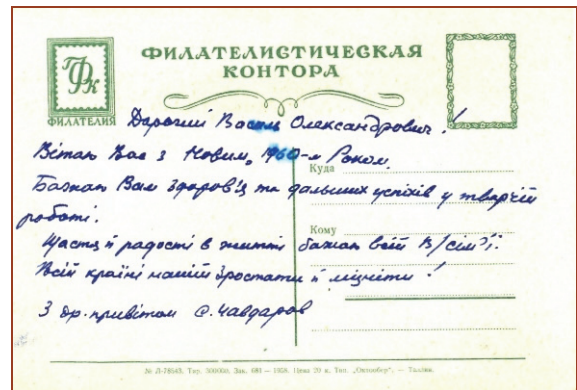 ФИЛАТЕЛИСТИЧЕСКАЯ
КОНТОРА
Фк
ФИЛАТЕЛИЯ
Дорогий Василь Олександрович!
Вітаю Вас з Новим, 1960-м Роком.
Куда
Бажаю Вам здоров'я та дальших успіхів у творчій
роботі.
Кому
Щастя й радості в житті бажаю всій В/сім'ї.
Всій країні нашій зростати й міцніти!
З др. привітом С. Чавдаров
№ Л-78543. Тир. 500000. Зак. 681 — 1958. Цена 20 к. Тип. „Октообер". — Таллин.